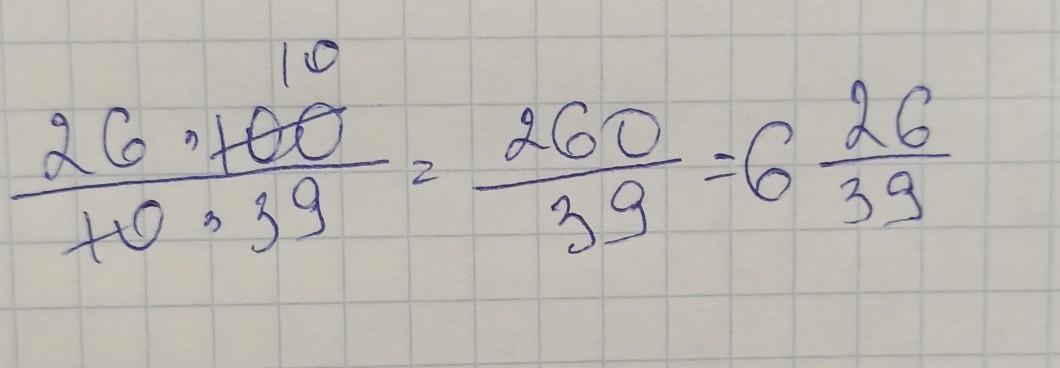 10
26 · 100 / 10 · 39 = 260 / 39 = 6 26 / 39